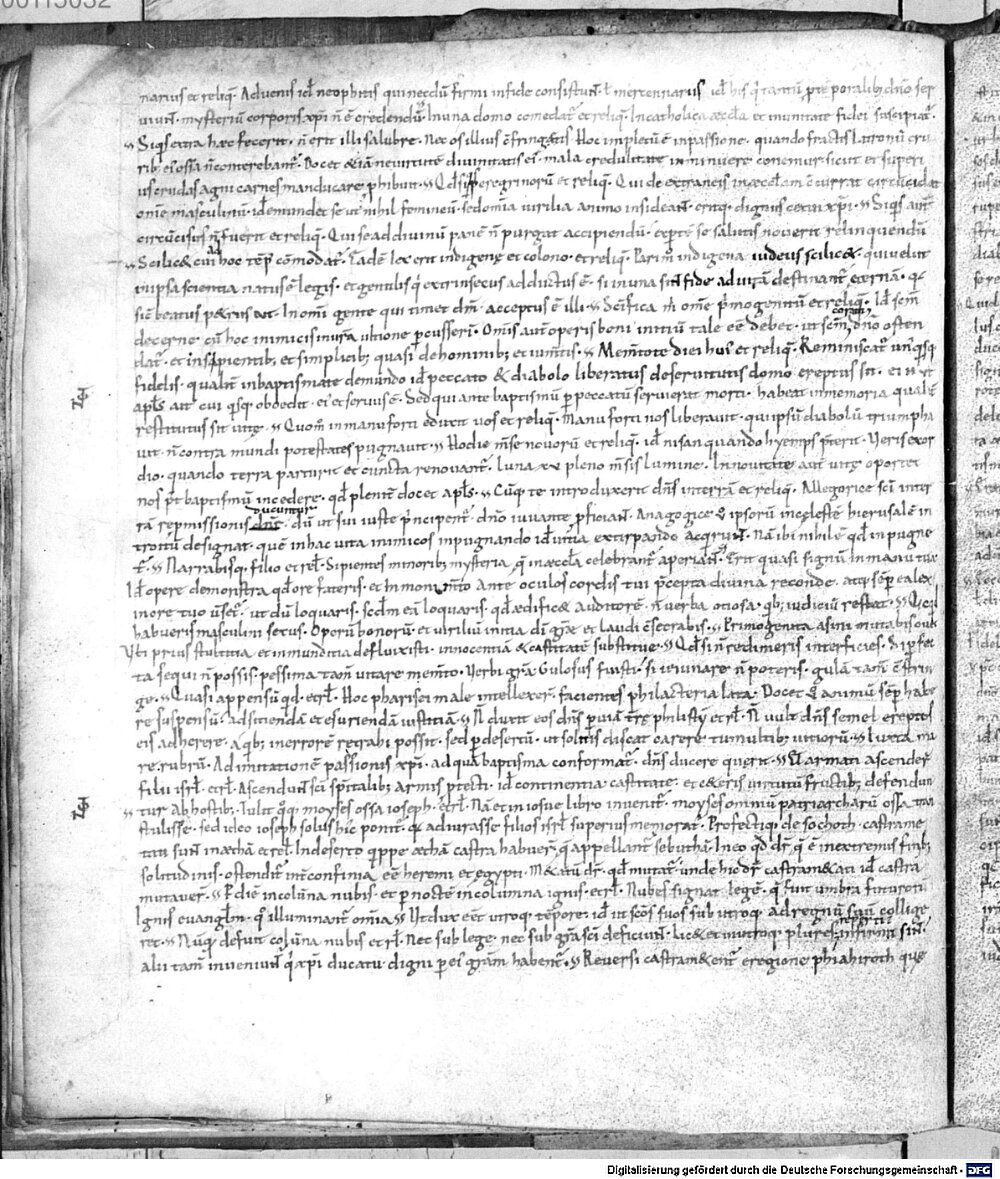 00115032
narius et reliq̄· Aduenis id ē neophitis qui necdū firmi infide consistunt· ł mercennarius id ē his q̇ tantū p̄ tēporalib; dn̄o ser
uiun̄t· mysteriū corporis xp̄i n̄ ē credendū· Inuna domo comedat̄ et reliq̄· Incatholica æccła et inunitate fidei suscipiat̄·
Siq̄s extra hæc fecerit· n̄ erit illi salubre· Nec os illius c̄fringatis· Hoc impletū ē inpassione· quando fractis latronū cru
rib; ei ossa n̄ conterebant̄· Docet etiā neuirtutē diuinitatis ei· mala credulitate inminuere conemur· sicut et superi
us crudas agni carnes manducare p̄hibuit· Qd̄ si q̄s peregrinorū et reliq̄· Qui de extraneis inæccłam c̄currat circūcidat
om̄e masculinū· id ē emundet se ut nihil femineū· sed om̄ia uirilia animo insideant· eritq· dignus cetui xp̄i· Siq̄s aut̄
circūcisus n̄ fuerit et reliq̄· Qui se ad diuinū panē n̄ purgat accipiendū· expertē se salutis nouerit relinquendū
Scilic& cui ad hoc tēp̄ cōmodat̄· Eadē lex erit indigene et colono· et reliq̄· Parim̄ indigena· iudeus scilic&· qui uelut
inipsa scientia natus ē legis· et gentilis q̇ extrinsecus adductus ē· si inuna sint fide ad uitā destinant̄ æternā· q̇
sic̄ beatus p&rus ait· In omi gente qui timet dn̄m· acceptus ē illi· Sc̄ifica m̄ om̄e p̄mogenitū et reliq̄· Id ē sc̄m
decerne· cū hoc inimicis in u̇ra ultione p̄cusseri· Omis aut̄ operis boni initiū tale eē debet· ut sc̄m coram dn̄o osten
dat̄· et insipientib; et simplicib; quasi de hominib; et ium̄tis· Mem̄tote diei hui et reliq̄· Reminiscat̄ un̄q̄sq̄
fidelis· qualit̄ inbaptismate de mundo id ē peccato & diabolo liberatus de seruitutis domo ereptus sit· ei n̄ ut
apłs ait cui q̄sq̄ oboedit· ei et seruus ē· Sed qui ante baptismū p̄ peccatū seruierat morti· habeat inmemoria qualit̄
restitutus sit uitę· Quom̄ in manu forti eduxit uos et reliq̄· Manu forti nos liberauit· qui ipsū diabolū triumpha
uit· n̄ contra mundi potestates pugnauit· Hodie m̄se nouorū et reliq̄· id ē nisan quando hyemps p̄terit· Ueris exor
dio· quando terra parturit et cuncta renouant̄· luna xv pleno m̄sis lumine· In nouitate aut̄ uitę oportet
nos p̄t baptismū incedere· qd̄ plenit̄ docet apłs· Cūq̄ te introduxerit dn̄s interrā et reliq̄· Allegorice sc̄i inter
rā repmissionis ducuntur dn̄t· dū ut sui iuste p̄ncipent̄· dn̄o iuuante p̄ficiant· Anagogice ipsorū incęlestē hierusalē in
troitū designat· quē inhac uita inimicos inpugnando id ē uitia extirpando acq̄run̄t· Nā ibi nihil ē qd̄ inpugne
t̄· Narrabisq̄· filio et reł· Sapientes minorib; mysteria q̄ inæccła celebrant̄ aperiant̄· Erit quasi signū in manu tua
Id ē opere demonstra qd̄ ore fateris· et inmonim̄to ante oculos cordis tui p̄cepta diuina reconde· atq̄ sēp̄ ea lex
inore tuo uerset̄· ut dū loquaris· scdm̄ eā loquaris· qd̄ ædific& auditorē· n̄ uerba otiosa· q̄b; iudiciū restat·
habueris masculini sexus· Operū bonorū· et uiriliū initia dī grǣ et laudi c̄secrabis· Primogenita asini mutabis oue
Ubi prius stultitia et inmunditia defluxisti· innocentiā & castitatē substitue· Qd̄ si n̄ redimeris interficies· Si p̄fec
ta sequi n̄ possis· pessima tam̄ uitare mem̄to· Uerbi grā· Gulosus fuisti· si ieiunare n̄ poteris· gulā tam̄ c̄strin
ge· Quasi appensū qd̄· et rł· Hoc pharisei male intellexer̄· facientes philacteria lata· Docet animū sēp̄ habe
re suspensū· ad sitiendā et esuriendā iustitiā· N̄ duxit eos dn̄s p̄ uiā tr̄rę philistij et rł· N̄ uult dn̄s semel ereptos
eis adherere· a q̄b; inerrorē retrahi possit· sed p̄ desertū· ut solitis discat carere tumultib; uitiorū· Iuxta ma
re rubrū· Ad imitationē passionis xp̄i· ad quā baptisma conformat̄· dn̄s ducere querit· Et armati ascender̄
filii isrł· et rł· Ascendun̄t sc̄i sp̄italib; armis p̄tecti· id ē continentia castitate· et c&eris uirtutū fructib; defendun
tur ab hostib;· Tulit q̄q̄· moyses ossa ioseph· et rł· Nā et in iosue libro inuenit̄· moysen omniū patriarcharū ossa tran
stulisse· sed ideo ioseph solus hic ponit̄· q̇ adiurasse filios isrł superius memorat̄· Profectiq̄· de sochoth· castrame
tati sunt inæthā et reł· In deserto quippe æthā castra habuer̄· q̄ appellant̄ sebuthā· In eo qd̄ dr̄· q̇ ē inextremis finib;
solitudinis· ostendit̄ int̄ confinia eē heremi et egypti· M&atū dr̄· qd̄ mutat̄· unde hic dr̄ castram&ati id ē castra
mutauer̄· P̄ diē incolūna nubis· et p̄ noctē incolumna ignis· et rł· Nubes signat legē· q̄ fuit umbra futurorū
Ignis euangłm· q̇ illuminant̄ om̄ia· Ut dux eēt utroq̄ tēpore· id ē ut sc̄os suos sub utroq̄ ad regnū suū collige
ret· Nūq̄ defuit colūna nubis et rł· Nec sub lege· nec sub grā sc̄i deficiun̄t· lic& et inutroq̄· plures infirmi sint·
alii tam̄ inueniun̄t q̇ xp̄i ducatu digni p̄ ei grām habent̄· Reuersi castram&ent̄ e regione phiahiroth quę
Digitalisierung gefördert durch die Deutsche Forschungsgemeinschaft · DFG